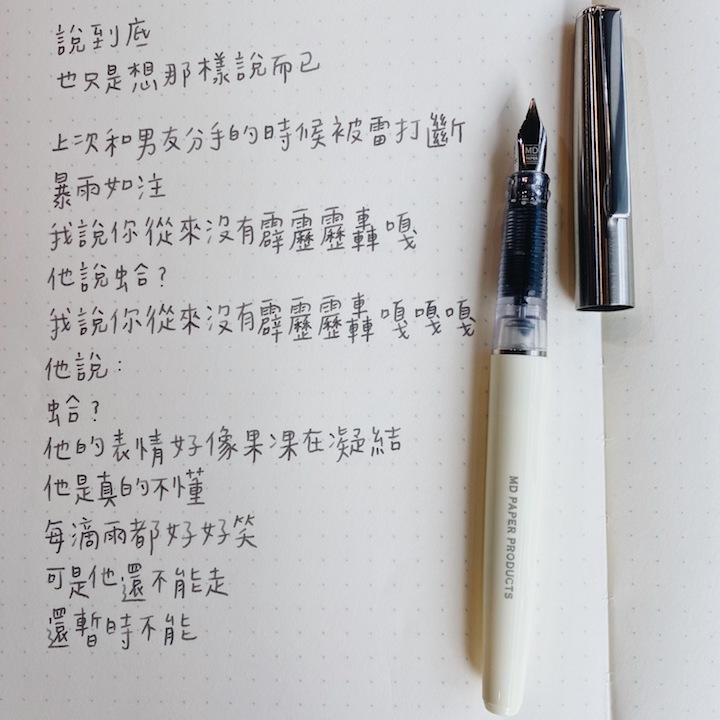 說到底
也只是想那樣說而已
上次和男友分手的時候被雷打斷
暴雨如注
我說你從來沒有霹靂靂轟嘎
他說蛤？
我說你從來沒有霹靂靂轟嘎嘎嘎
他說：
蛤？
他的表情好像果凍在凝結
他是真的不懂
每滴雨都好好笑
可是他還不能走
還暫時不能
MD
PAPER
MD PAPER PRODUCTS